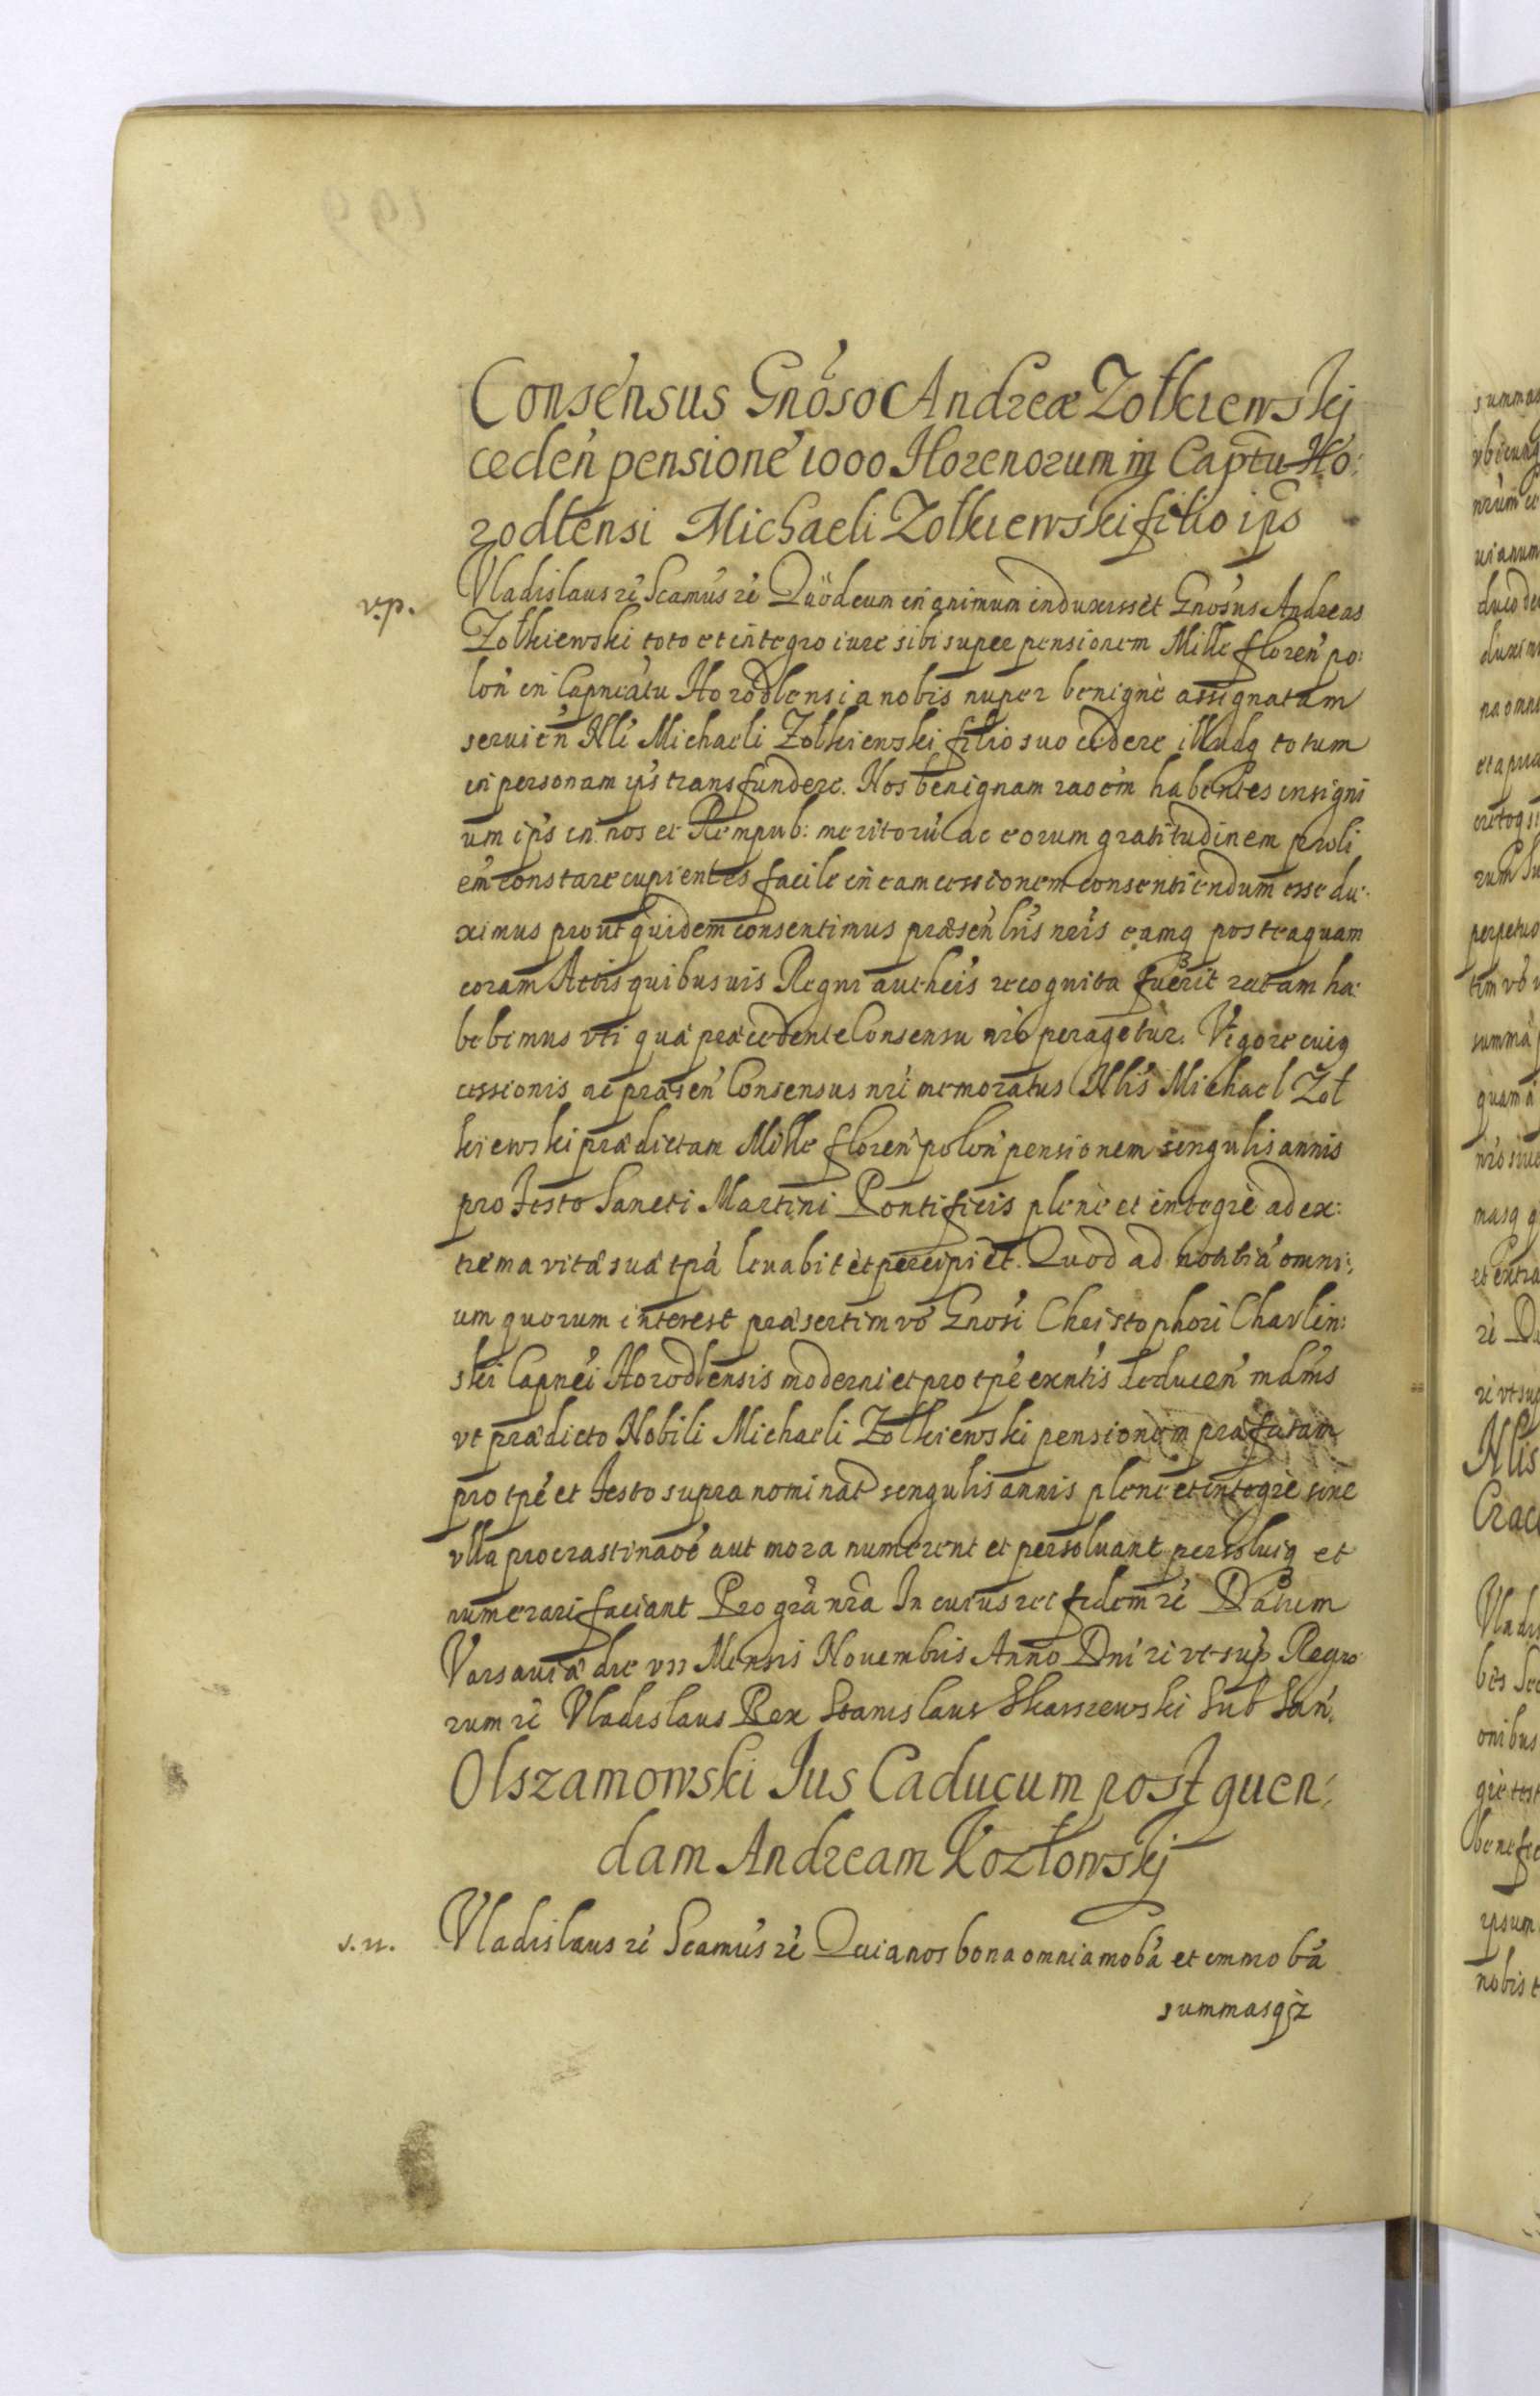 Consensus Gnoso Andreæ Zołkiewskj
ceden pensione 1000 Florenorum in Captu Ho:
rodlensi Michaeli Zołkiewski filio ips
v.p. Vladislaus zc Scamus zc Quod cum in animum induxisset Gnosus Andreas
Zołkiewski toto et integro iure sibi super pensionem Mille floren po:
lon in Capneatu Horodlensi a nobis nuper benigne assignatam
servien Nli Michaeli Zołkiewski filio suo cedere illudq totum
in personam ips transfundere. Nos benignam raoem habentes insigni
um ips in nos et Rempub: meritoru ac eorum gratitudinem proli
em constare cupientes facile in eam cessionem consentiendum esse du:
ximus prout quidem consentimus præsen lris nris eamq posteaquam
coram Actis quibusuis Regni autheis recognita fuerit ratam ha:
bebimus vti quæ præcedente Consensu nro peragetur. Vigore cuiq
cessionis ac præsen Consensus nri memoratus Nlis Michael Zoł
kiewski prædictam Mille floren polon pensionem singulis annis
pro Festo Sancti Martini Pontificis plene et integre ad ex:
trema vitæ suæ tpa levabit et percipiet. Quod ad notitia omni:
um quorum interest præsertim vo Gnosi Christophori Charlin:
ski Capnei Horodlensis moderni et pro tpe exntis deducen mdms
vt prædicto Nobili Michaeli Zołkiewski pensionem præfatam
pro tpe et Festo supra nominat singulis annis plene et integre sine
vlla procrastinaoe aut mora numerent et persoluant persoluiq et
numerari faciant Pro gra nra In cuius rei fidem zc Datum
Varsaviæ die VII Mensis Novembris Anno Dni zc vt sup Regno
rum zc Vladislaus Rex Stanislaus Skarszewski Sub San.
Olszamowski Ius Caducum post quen:
dam Andream Kozłowskj
s.n. Vladislaus zc Scamus zc Quia nos bona omnia moba et immoba
summasq;z